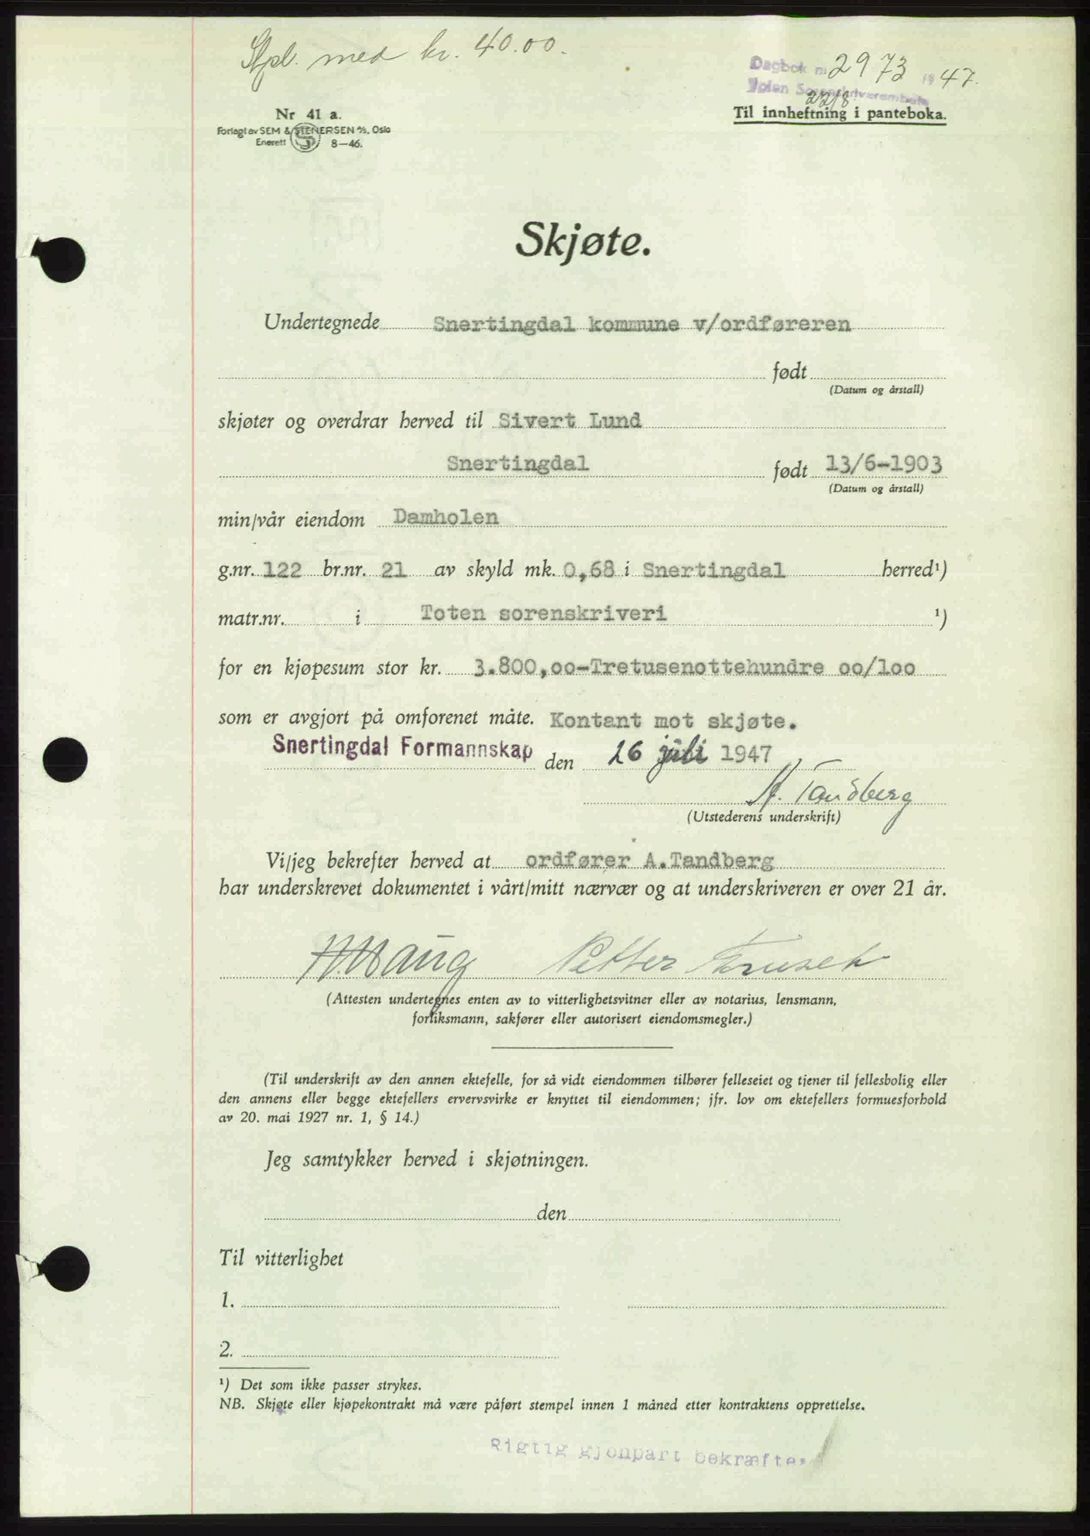 Stpl. med kr. 40.00.
Dagbok nr. 2973 1947.
Toten Sorenskriverembete
22/8
Nr 41 a.
Til innheftning i panteboka.
Forlagt av SEM & STENERSEN A/S, Oslo
Enerett 8—46.
Skjøte.
Undertegnede Snertingdal kommune v/ordføreren
født
(Datum og årstall)
skjøter og overdrar herved til Sivert Lund
Snertingdal født 13/6-1903
(Datum og årstall)
min/vår eiendom Damholen
g.nr. 122 br.nr. 21 av skyld mk. 0,68 i Snertingdal herred¹)
matr.nr. i Toten sorenskriveri ¹)
for en kjøpesum stor kr. 3.800,oo-Tretusenottehundre oo/loo
som er avgjort på omforenet måte. Kontant mot skjøte.
Snertingdal Formannskap den 26 juli 1947
A. Tandberg
(Utstederens underskrift)
Vi/jeg bekrefter herved at ordfører A.Tandberg
har underskrevet dokumentet i vårt/mitt nærvær og at underskriveren er over 21 år.
Haug Petter
(Attesten undertegnes enten av to vitterlighetsvitner eller av notarius, lensmann,
forliksmann, sakfører eller autorisert eiendomsmegler.)
(Til underskrift av den annen ektefelle, for så vidt eiendommen tilhører felleseiet og tjener til fellesbolig eller
den annens eller begge ektefellers ervervsvirke er knyttet til eiendommen; jfr. lov om ektefellers formuesforhold
av 20. mai 1927 nr. 1, § 14.)
Jeg samtykker herved i skjøtningen.
den
Til vitterlighet
1.
2.
¹) Det som ikke passer strykes.
NB. Skjøte eller kjøpekontrakt må være påført stempel innen 1 måned etter kontraktens opprettelse.
Rigtig gjenpart bekræftes